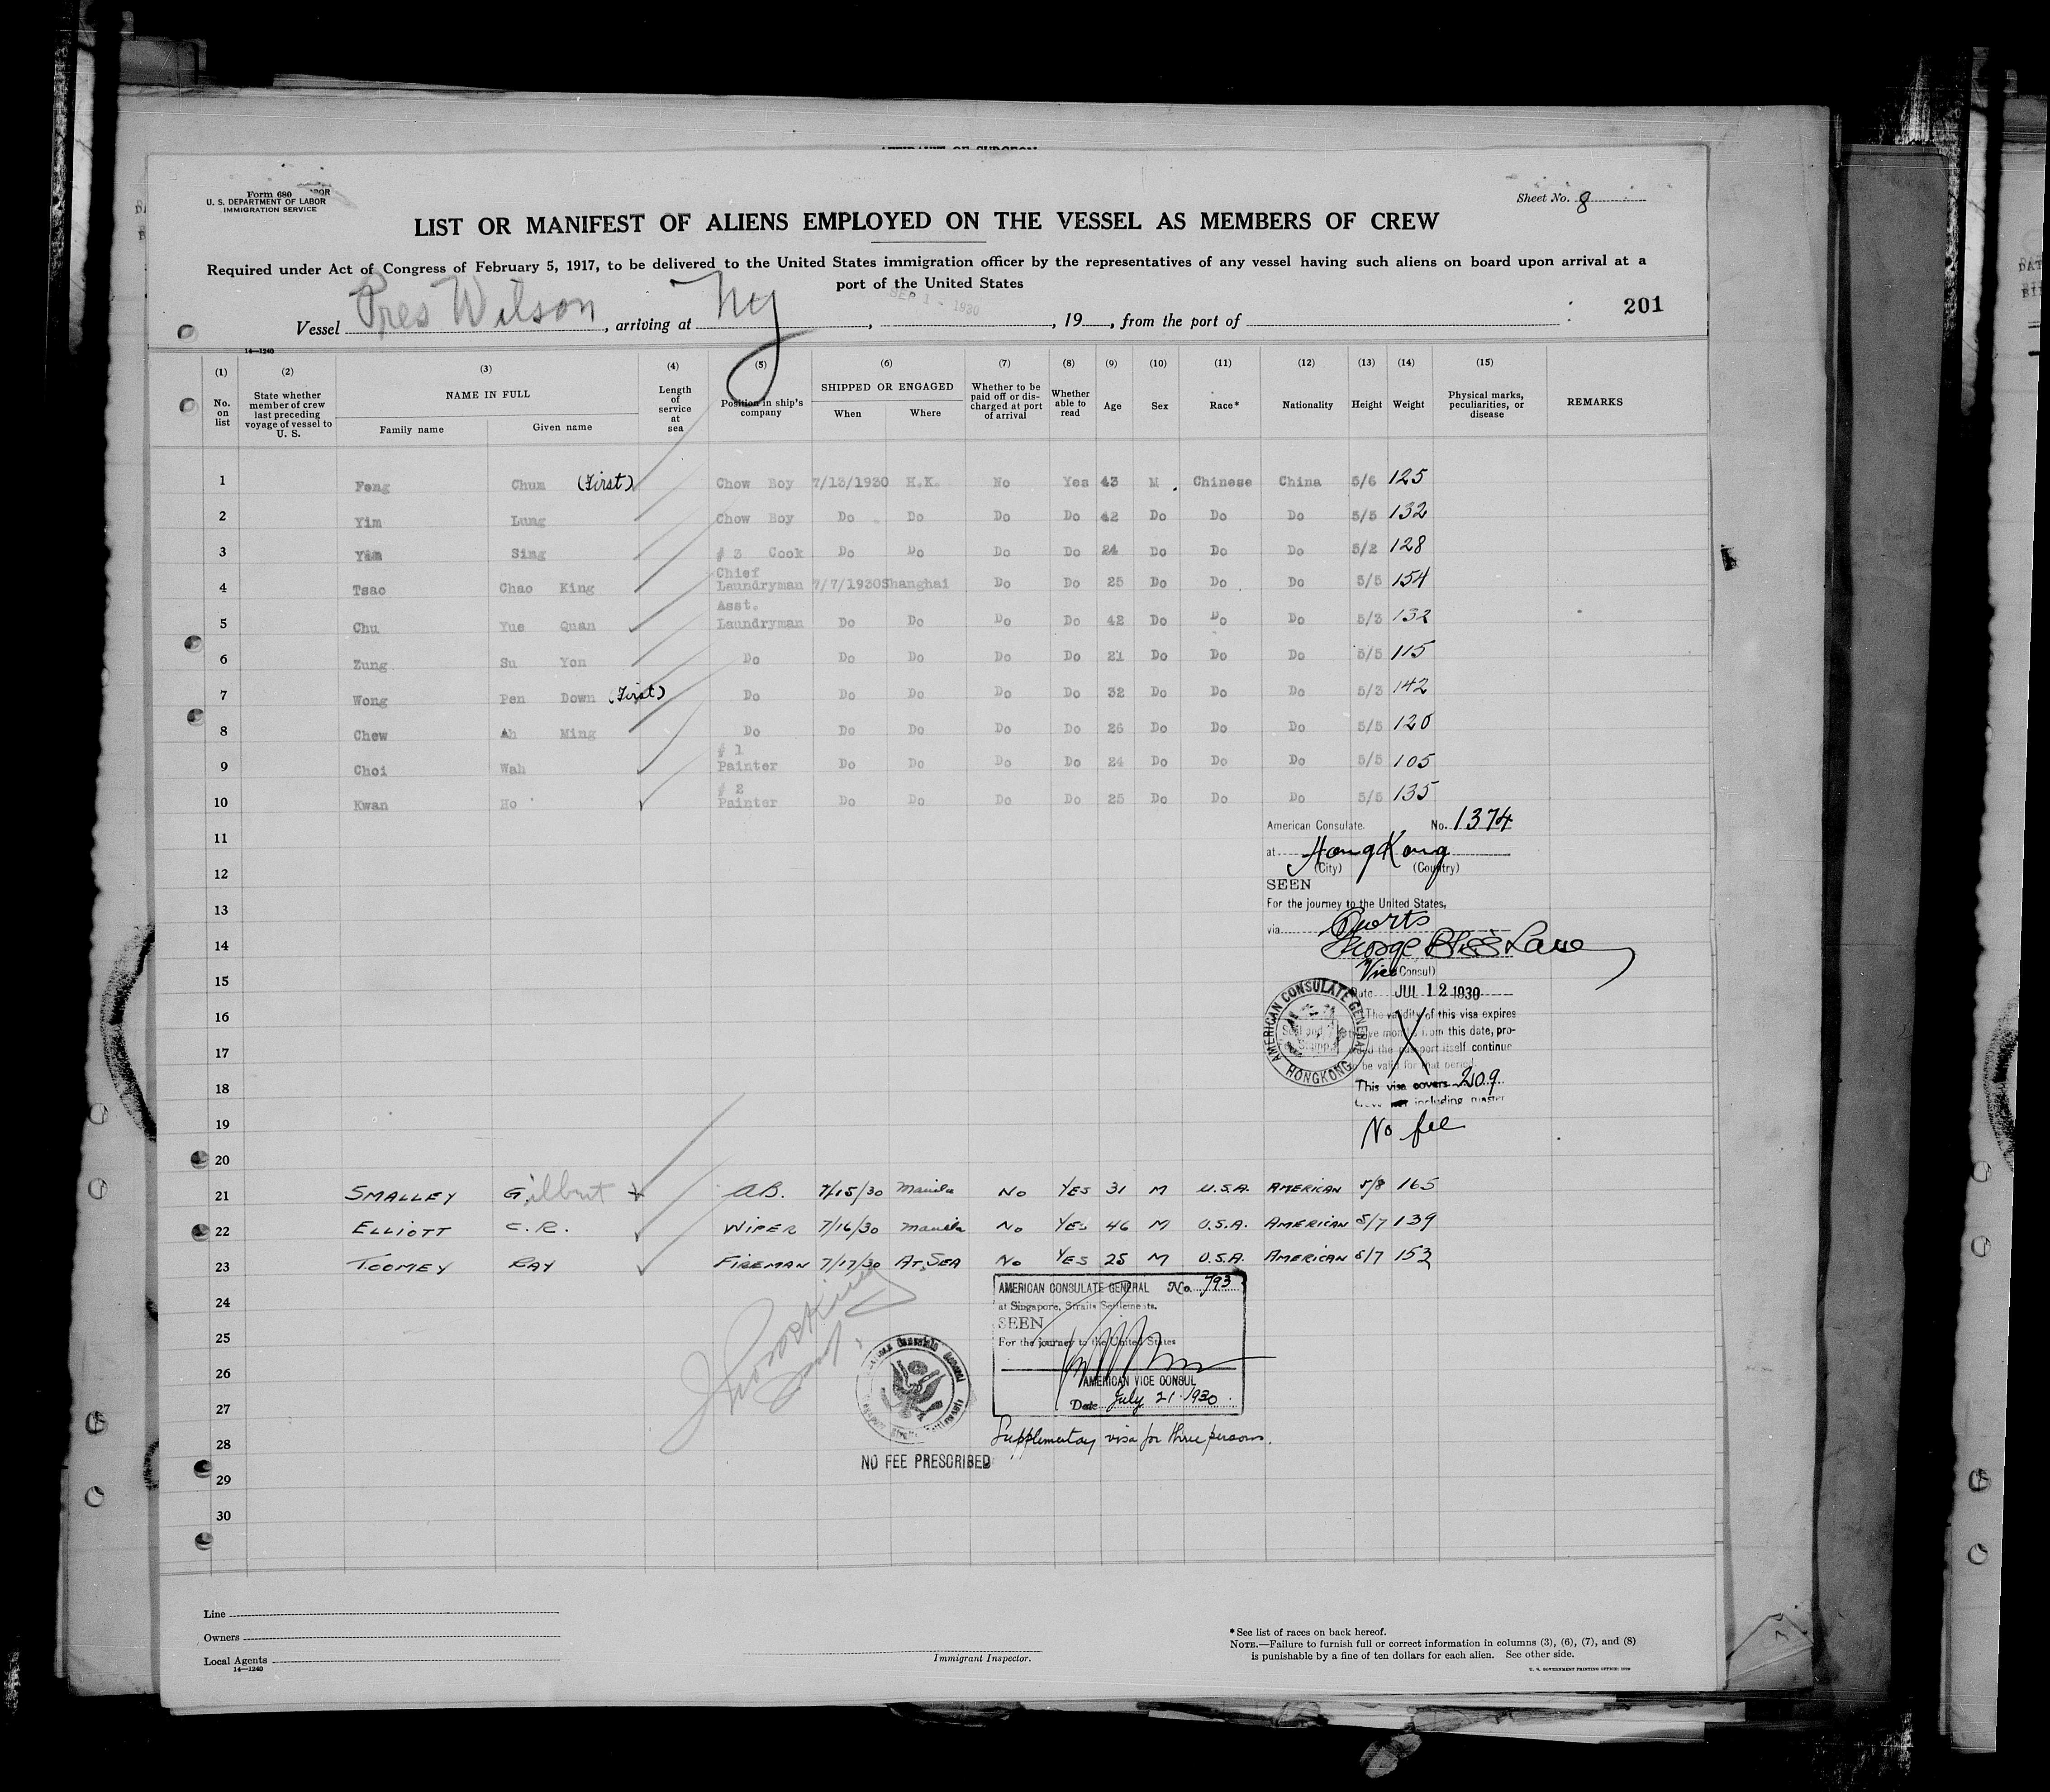 AFFIDAVIT OF SURGEON
Form 680
U. S. DEPARTMENT OF LABOR
IMMIGRATION SERVICE
Sheet No. 8
LIST OR MANIFEST OF ALIENS EMPLOYED ON THE VESSEL AS MEMBERS OF CREW
Required under Act of Congress of February 5, 1917, to be delivered to the United States immigration officer by the representatives of any vessel having such aliens on board upon arrival at a
port of the United States
SEP 1 - 1930
201
Vessel Pres Wilson, arriving at Ny, , 19 , from the port of
14—1240
(1) (2) (3) (4) (5) (6) (7) (8) (9) (10) (11) (12) (13) (14) (15)
No. on list
State whether member of crew last preceding voyage of vessel to U. S.
NAME IN FULL
Family name Given name
Length of service at sea
Position in ship's company
SHIPPED OR ENGAGED
When Where
Whether to be paid off or discharged at port of arrival
Whether able to read
Age Sex Race* Nationality Height Weight
Physical marks, peculiarities, or disease
REMARKS
1 Fong Chum (First) Chow Boy 7/13/1930 H.K. No Yes 43 M Chinese China 5/6 125
2 Yim Lung Chow Boy Do Do Do Do 42 Do Do Do 5/5 132
3 Yim Sing # 3 Cook Do Do Do Do 24 Do Do Do 5/2 128
4 Tsao Chao King Chief Laundryman 7/7/1930 Shanghai Do Do 25 Do Do Do 5/5 154
5 Chu Yue Quan Asst. Laundryman Do Do Do Do 42 Do Do Do 5/3 132
6 Zung Su Yon Do Do Do Do Do 21 Do Do Do 5/5 115
7 Wong Pen Down (First) Do Do Do Do Do 32 Do Do Do 5/3 142
8 Chew Ah Ming Do Do Do Do Do 26 Do Do Do 5/5 120
9 Choi Wah # 1 Painter Do Do Do Do 24 Do Do Do 5/5 105
10 Kwan Ho # 2 Painter Do Do Do Do 25 Do Do Do 5/5 135
11
12
13
14
15
16
17
18
19
20
American Consulate. No. 1374
at Hong Kong
(City) (Country)
SEEN
For the journey to the United States,
via Ports
George Bliss Lane
Vice (Consul)
Date JUL 12 1930
AMERICAN CONSULATE GENERAL
HONGKONG
The validity of this visa expires
months from this date, pro-
the passport itself continue
be valid for that period
This visa covers 209
including master
No fee
21 SMALLEY Gilbert A.B. 7/15/30 Manila No YES 31 M U.S.A. AMERICAN 5/8 165
22 ELLIOTT C.R. WIPER 7/16/30 Manila No YES 46 M U.S.A. AMERICAN 5/7 139
23 TOOMEY RAY FIREMAN 7/17/30 AT SEA No YES 25 M U.S.A. AMERICAN 5/7 153
24
25
26
27
28
29
30
AMERICAN CONSULATE GENERAL No. 793
at Singapore, Straits Settlements.
SEEN
For the journey to the United States
AMERICAN VICE CONSUL
Date July 21 1930
Supplementary visa for three persons.
NO FEE PRESCRIBED
Line
Owners
Local Agents
14—1240
Immigrant Inspector.
*See list of races on back hereof.
NOTE.—Failure to furnish full or correct information in columns (3), (6), (7), and (8)
is punishable by a fine of ten dollars for each alien. See other side.
U. S. GOVERNMENT PRINTING OFFICE: 1929